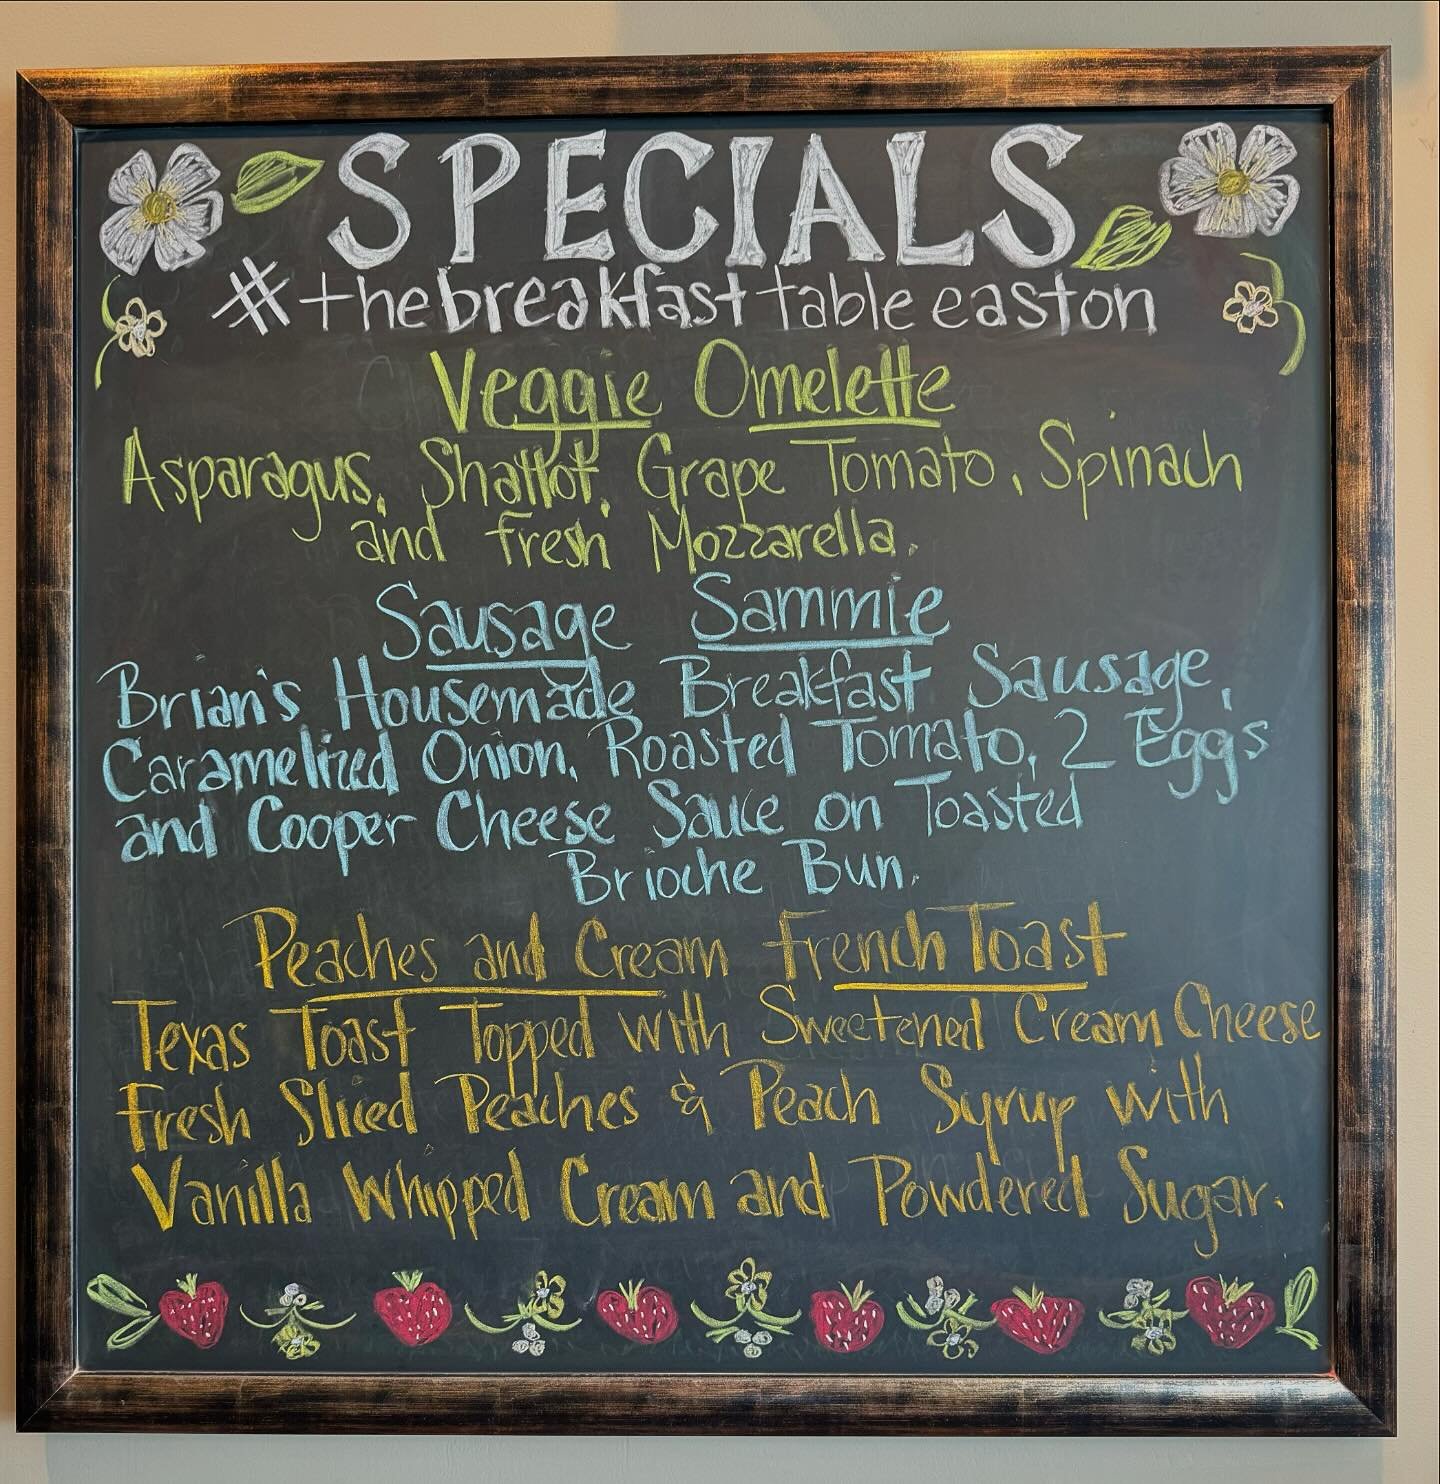 SPECIALS
#thebreakfasttableeaston
Veggie Omelette
Asparagus, Shallot, Grape Tomato, Spinach
and fresh Mozzarella.
Sausage Sammie
Brian's Housemade Breakfast Sausage,
Caramelized Onion, Roasted Tomato, 2 Eggs
and Cooper Cheese Sauce on Toasted
Brioche Bun.
Peaches and Cream French Toast
Texas Toast Topped with Sweetened Cream Cheese
Fresh Sliced Peaches & Peach Syrup with
Vanilla Whipped Cream and Powdered Sugar.